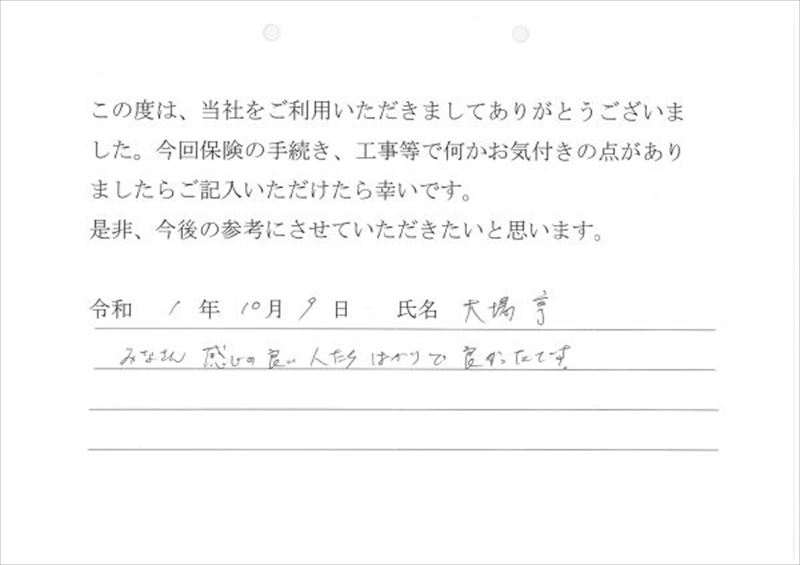 この度は、当社をご利用いただきましてありがとうございま
した。今回保険の手続き、工事等で何かお気付きの点があり
ましたらご記入いただけたら幸いです。
是非、今後の参考にさせていただきたいと思います。
令和 1 年 10 月 9 日 氏名 大場 亨
みなさん 感じの良い 人たち ばかりで 良かったです